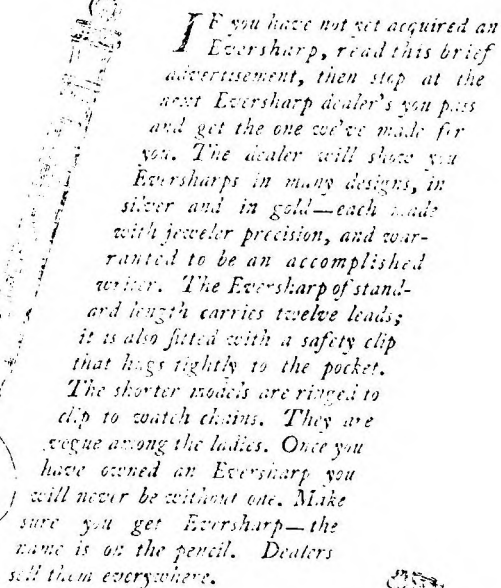 IF you have not yet acquired an
Eversharp, read this brief
advertisement, then stop at the
next Eversharp dealer's you pass
and get the one we've made for
you. The dealer will show you
Eversharps in many designs, in
silver and in gold—each made
with jeweler precision, and war-
ranted to be an accomplished
writer. The Eversharp of stand-
ard length carries twelve leads;
it is also fitted with a safety clip
that hugs tightly to the pocket.
The shorter models are ringed to
clip to watch chains. They are
vogue among the ladies. Once you
have owned an Eversharp you
will never be without one. Make
sure you get Eversharp—the
name is on the pencil. Dealers
sell them everywhere.